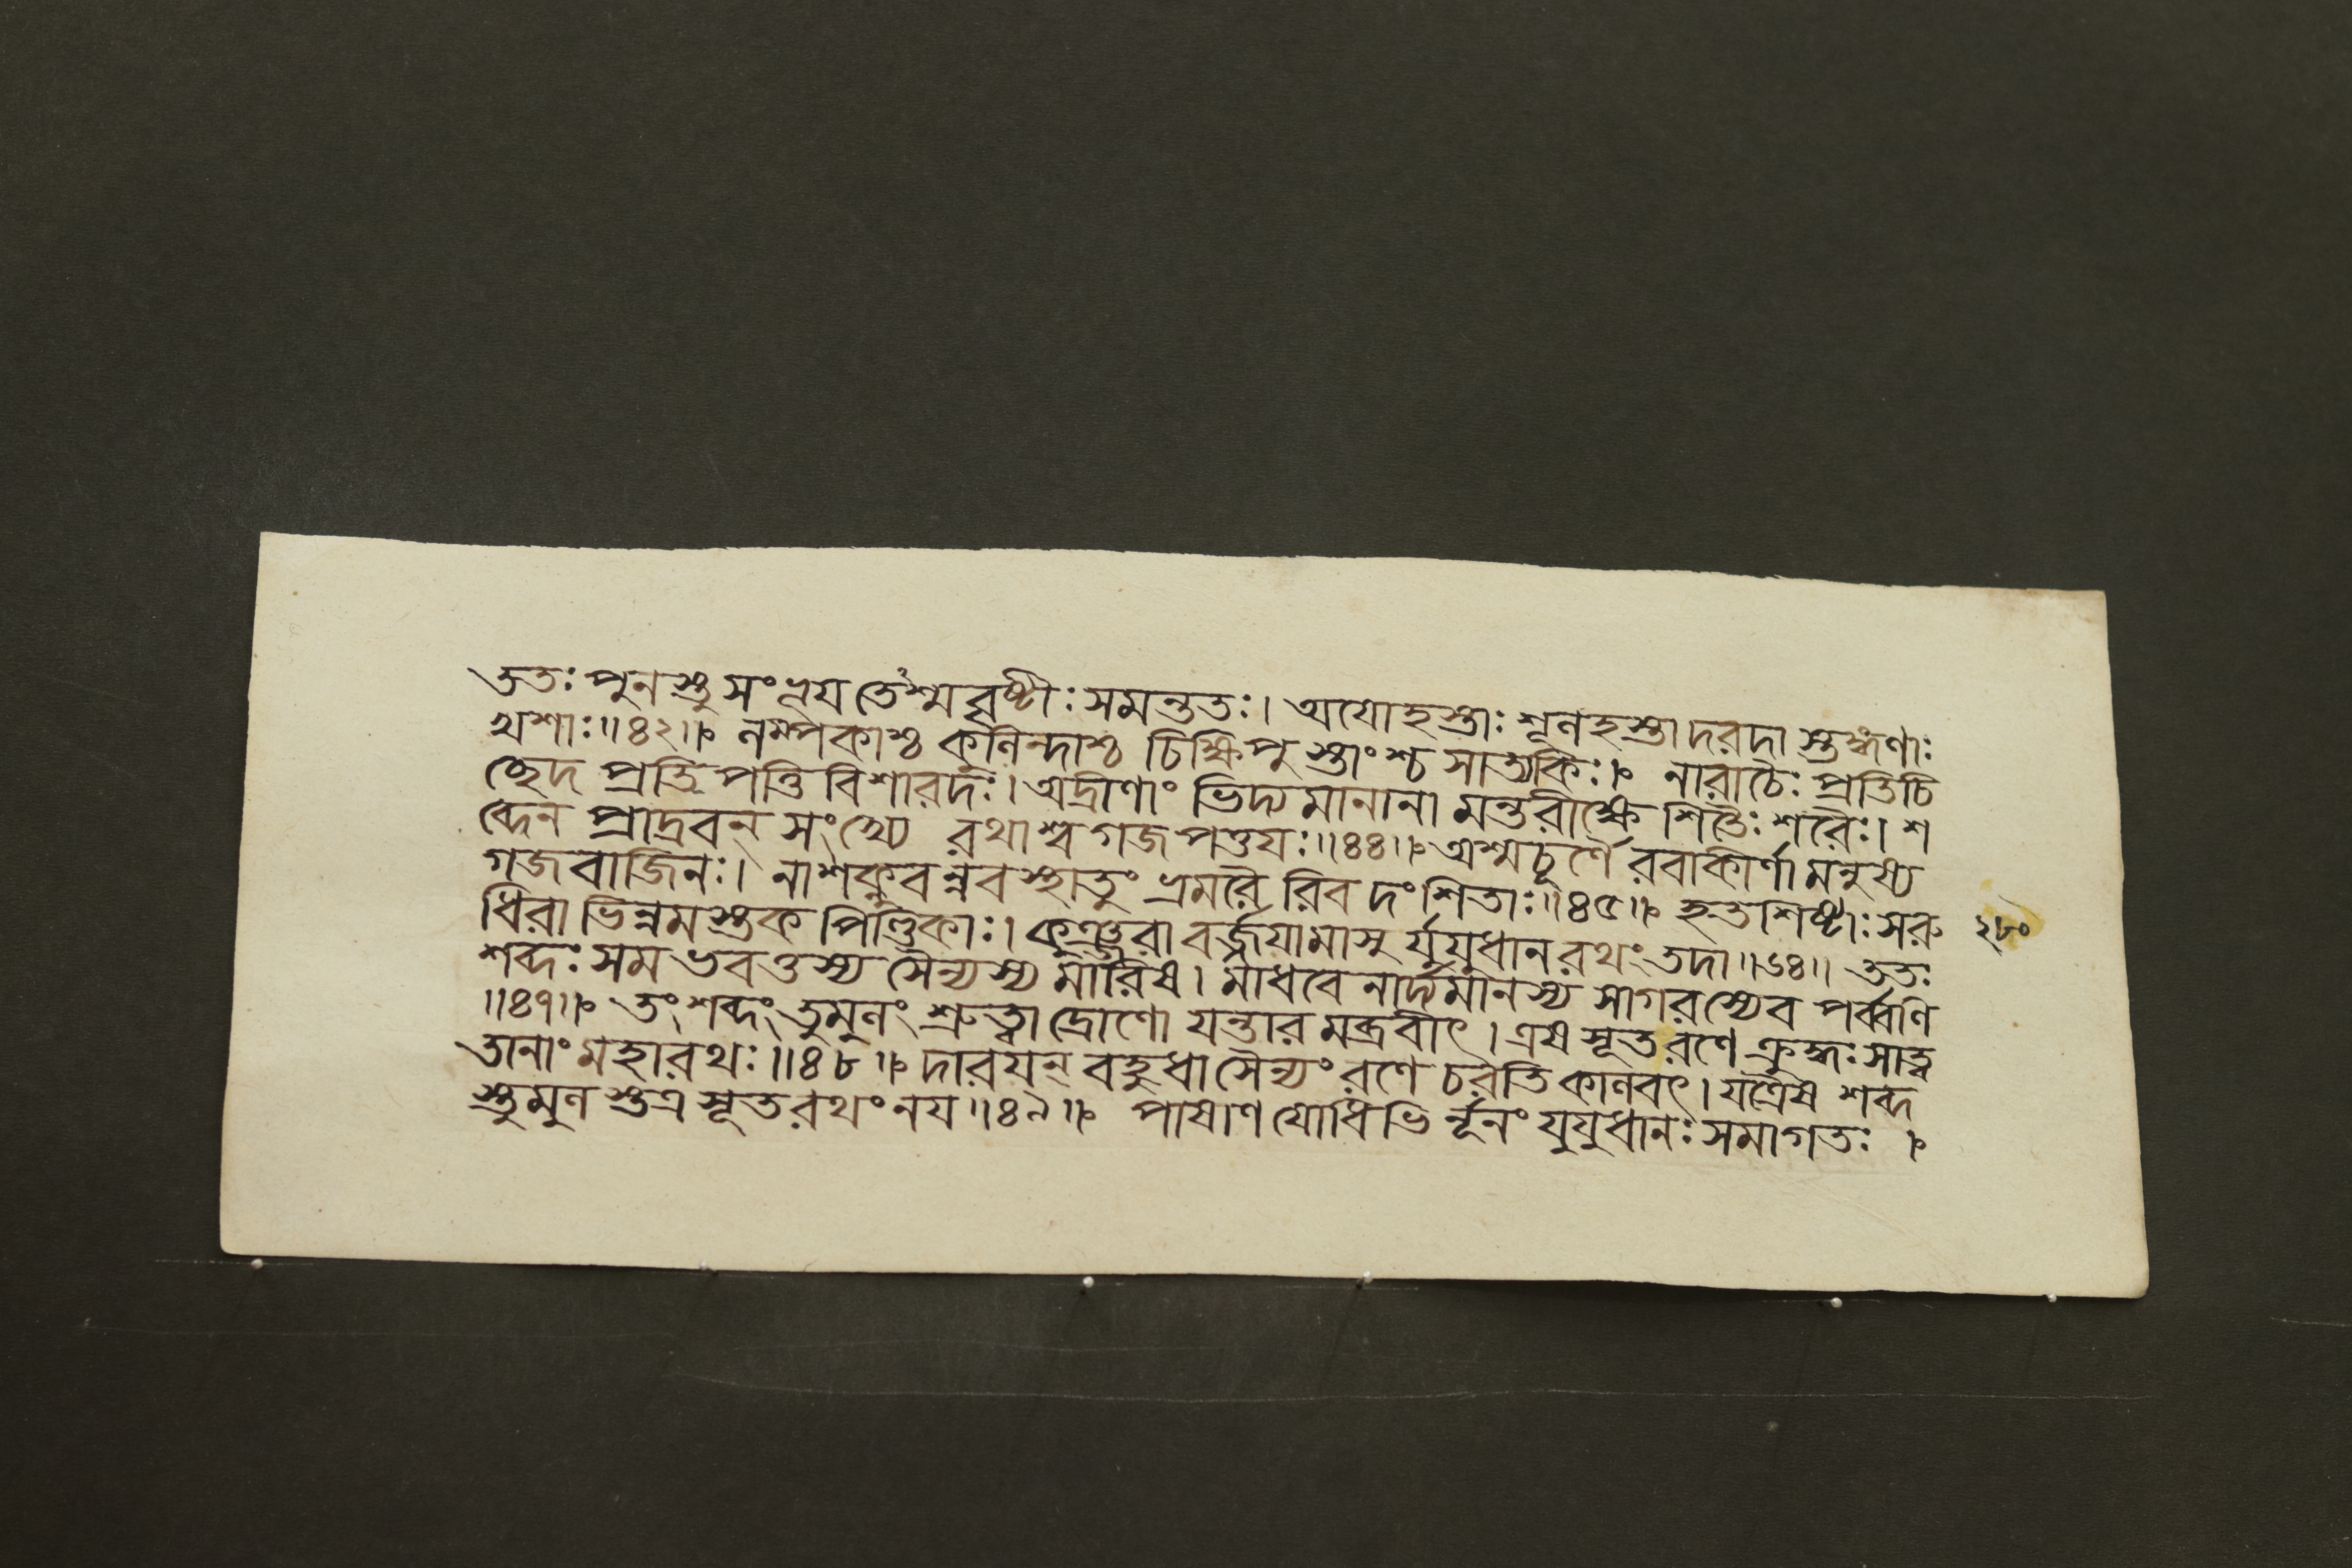 ততঃ পুনস্তু সংভ্রময তেঽশ্মবৃষ্টীঃ সমন্ততঃ। অযোহস্তাঃ শূলহস্তা দরদা স্তুঙ্গণাঃ
খশাঃ॥৪২॥ লম্পকাশ্চ কুলিন্দাশ্চ চিক্ষিপু স্তাংশ্চ সাত্যকিঃ। নারাচৈঃ প্রতিচি
চ্ছেদ প্রতিপত্তি বিশারদঃ। অদ্রীণাং ভিদ্যমানানা মন্তরীক্ষে শিতৈঃ শরৈঃ। শ
ব্দেন প্রাদ্রবন্ সংখ্যে রথাশ্ব গজ পত্তযঃ॥৪৪॥ অশ্মচূর্ণৈ রবাকীর্ণা মনুষ্য
গজবাজিনঃ। নাশক্নুবন্নবস্থাতুং ভ্রমরৈ রিব দংশিতাঃ॥৪৫॥ হতশিষ্টাঃ সরু
ধিরা ভিন্নমস্তক পিণ্ডিকাঃ। কুঞ্জরা বর্জ্জযামাসু র্যুযুধান রথং তদা॥৬৪॥ ততঃ
শব্দঃ সমভবত্তস্য সৈন্যস্য মারিষ। মাধবেনার্দ্যমানস্য সাগরস্যেব পর্ব্বণি
॥৪৭॥ তং শব্দং তুমুলং শ্রুত্বা দ্রোণো যন্তার মব্রবীৎ। এষ সূত রণে ক্রুদ্ধঃ সাত্ব
তানাং মহারথঃ॥৪৮॥ দারযন্ বহুধা সৈন্যং রণে চরতি কালবৎ। যত্রৈষ শব্দ
স্তুমুল স্তত্র সূত রথং নয॥৪৯॥ পাষাণ যোধিভি র্নূনং যুযুধানঃ সমাগতঃ।
২৮০